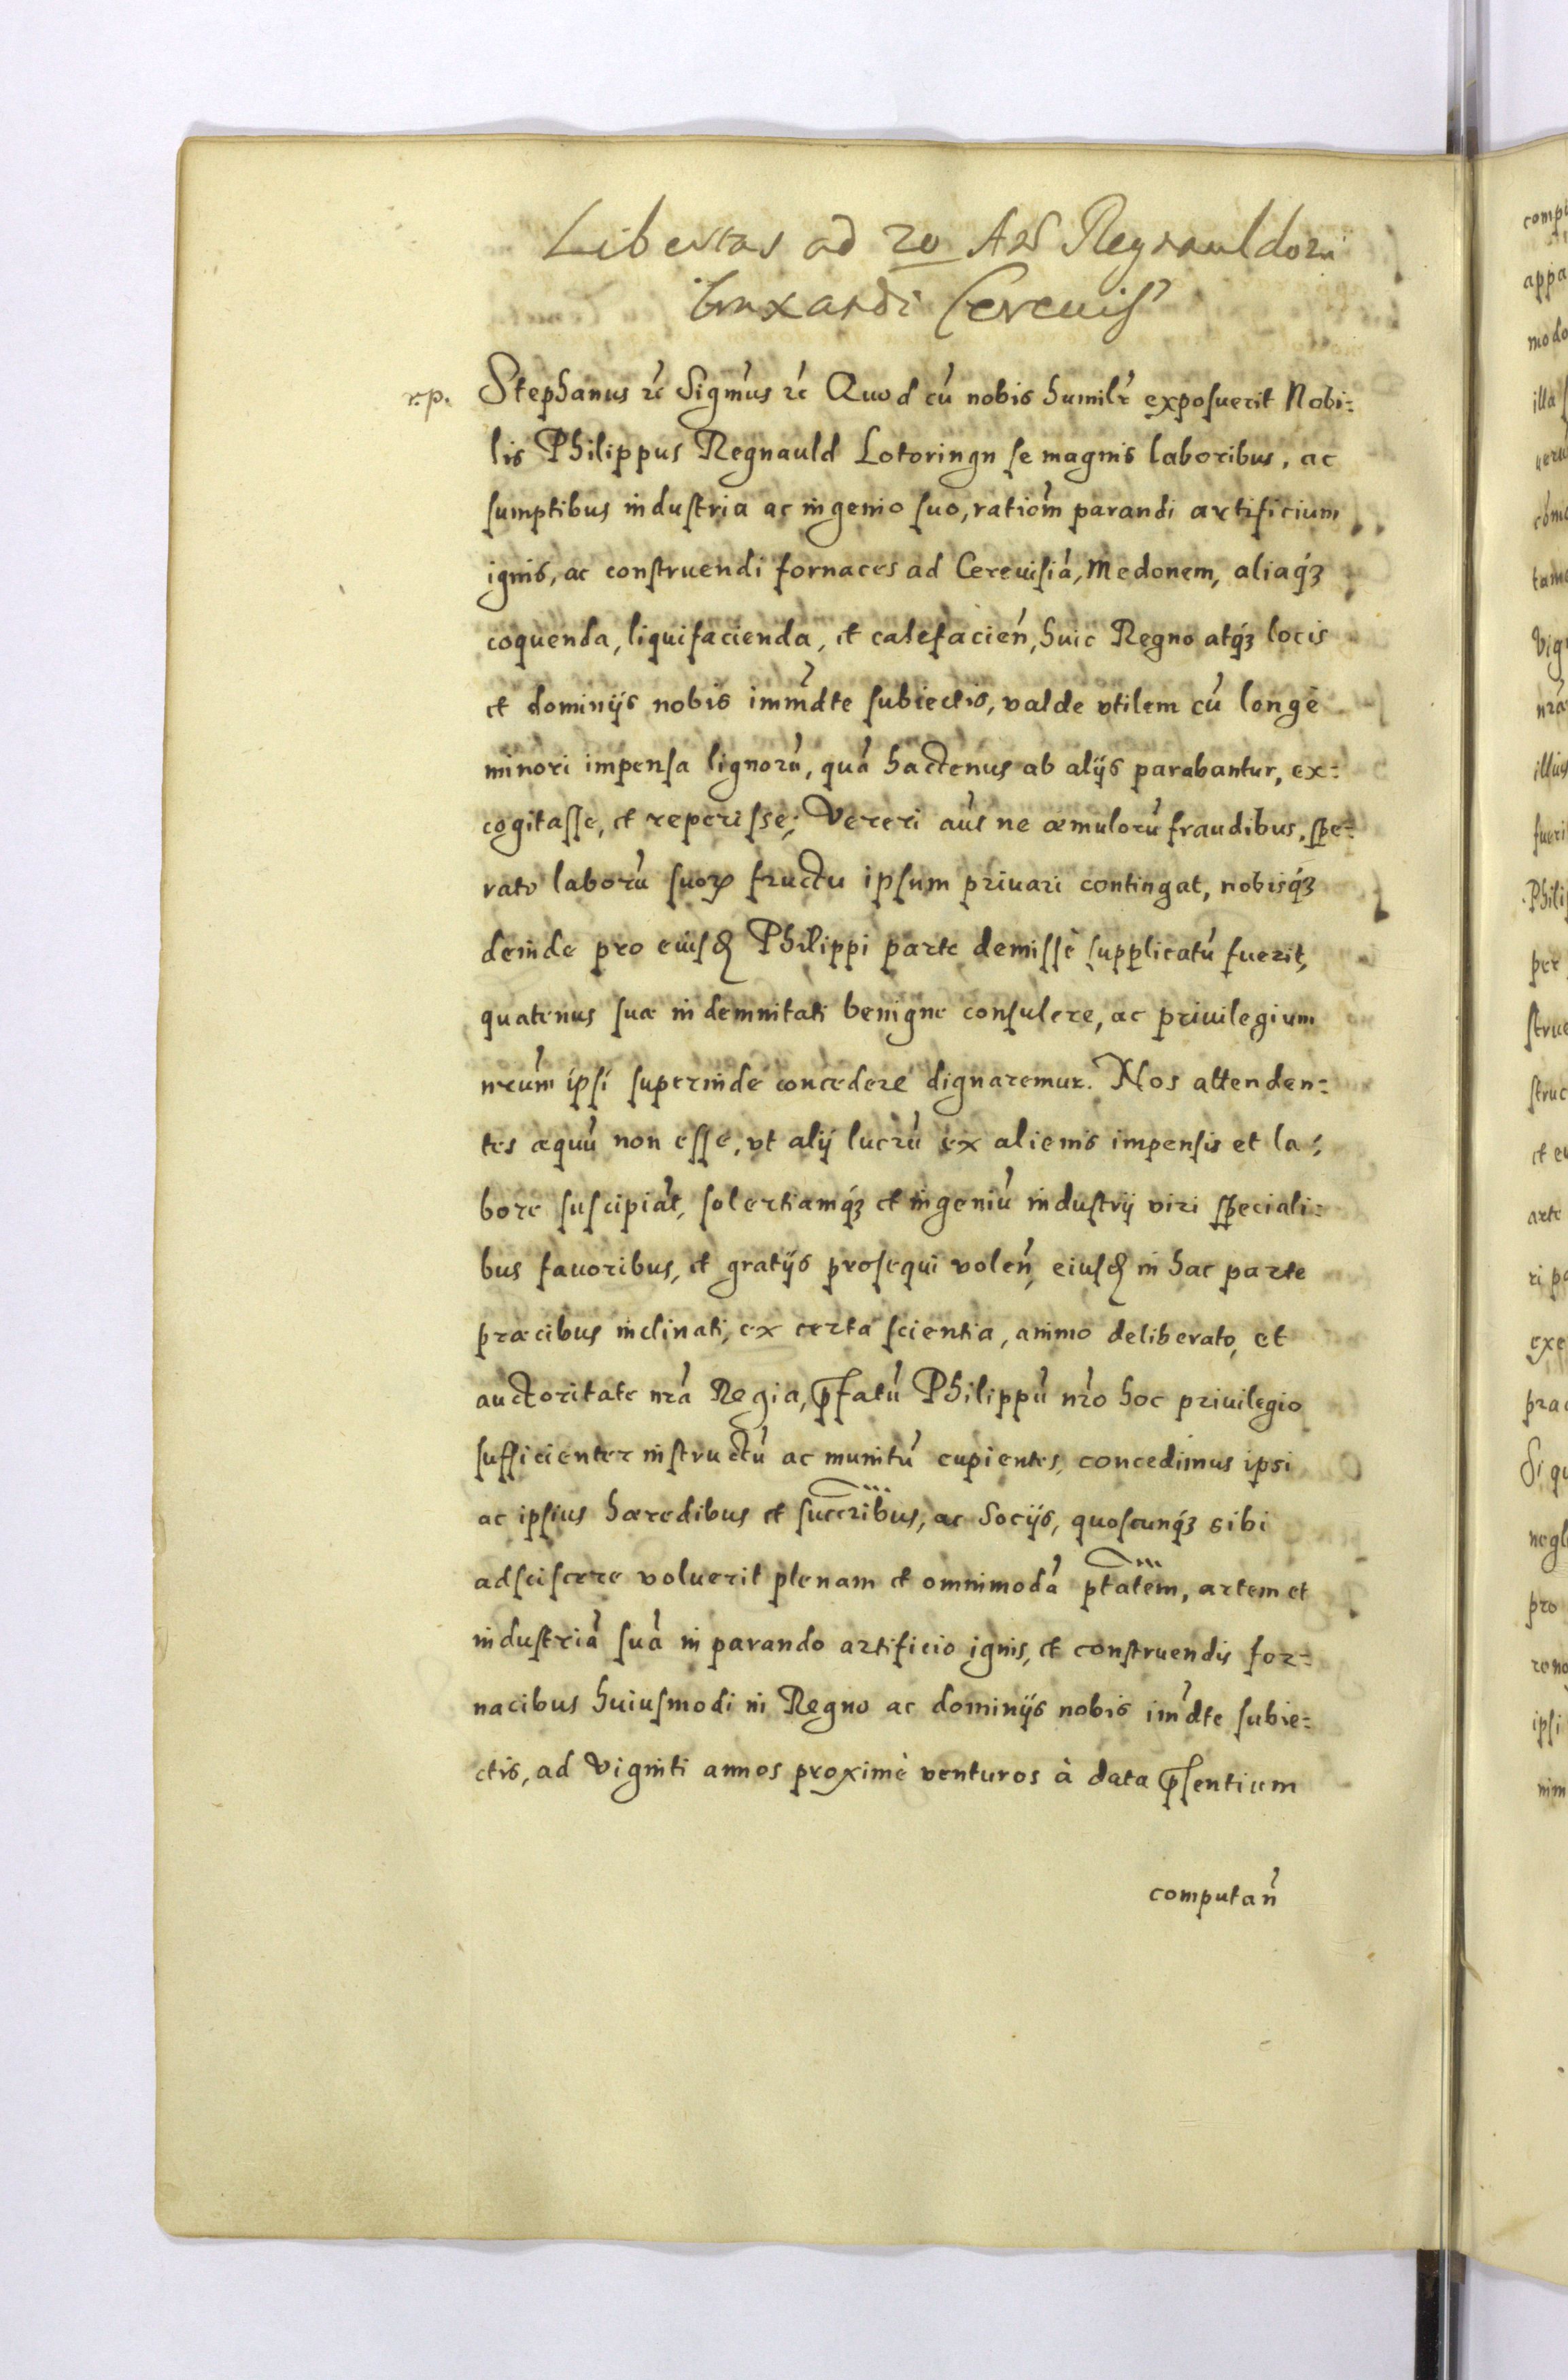 Libertas ad 20 A̅s Regnauldo
braxandi Cereuis
r.p. Stephanus ꝛc Sigmus ꝛc Quod cú nobis humilr exposuerit Nobi=
lis Philippus Regnauld Lotoringn se magnis laboribus, ac
sumptibus industria ac ingenio suo, rationm parandi artificium
ignis, ac construendi fornaces ad Cereuisiá, Medonem, aliaq́ꝫ
coquenda, liquifacienda, et calefacień, huic Regno atq́ꝫ locis
et dominijs nobis imḿdte subiectis, valde vtilem cú longè
minori impensa lignorú, quá hactenus ab alijs parabantur, ex=
cogitasse, et reperisse; Vereri aút ne æmulorú fraudibus, spe=
rato laború suoꝝ fructu ipsum priuari contingat, nobisq́ꝫ
deinde pro eiusꝺ Philippi parte demissè supplicatú fuerit,
quatenus suæ indemnitati benigne consulere, ac priuilegium
nrúm ipsi superinde concedere dignaremur. Nos attenden=
tes æquú non esse, vt alij lucrú ex alienis impensis et la=
bore suscipiát, solertiamq́ꝫ et ingeniú industrij viri speciali=
bus fauoribus, et gratijs prosequi voleń, eiusꝺ in hac parte
præcibus inclinati, ex certa scientia, animo deliberato, et
auctoritate nrá Regia, p̃fatú Philippú nró hoc priuilegio
sufficienter instructú ac munitú cupientes, concedimus ipsi
ac ipsius hæredibus et succribus, ac Socijs, quoscunq́ꝫ sibi
adsciscere voluerit plenam et omnimodá ptatem, artem et
industriá suá in parando artificio ignis, et construendis for=
nacibus huiusmodi in Regno ac dominijs nobis imḿdte subie=
ctis, ad viginti annos proximè venturos à data p̃sentium
computań